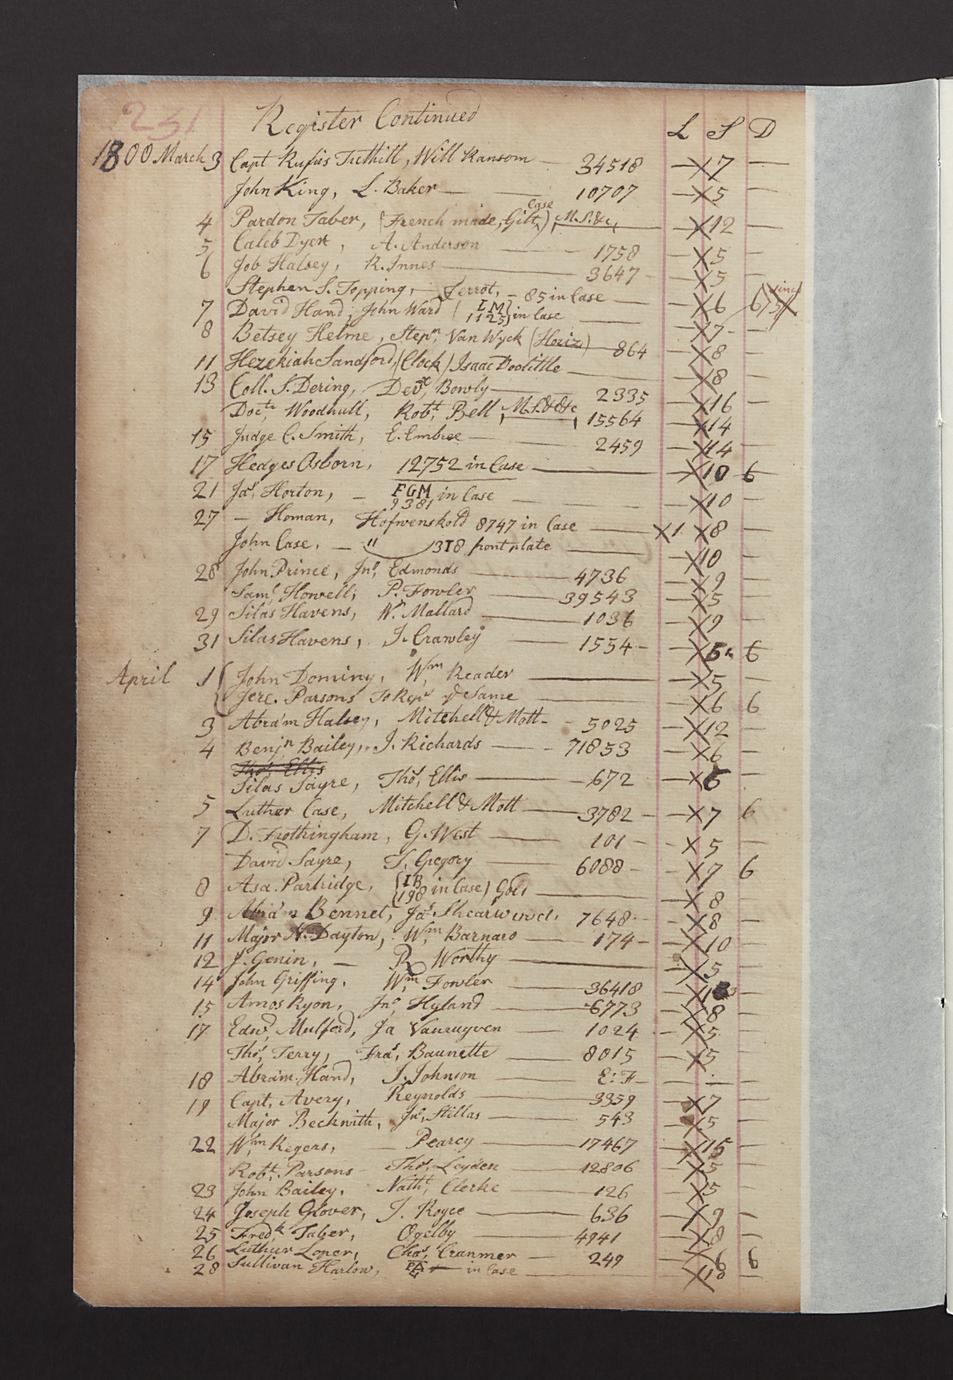 231 Register Continued L S D
1800 March 3 Capt Rufus Tuthill, Will Ransom — 34518 — X 7 —
John King, L. Baker — 10707 — X 5 —
4 Pardon Taber, (French made, Gilt Case) M.S.&c, — X 12 —
5 Caleb Dyer, A. Anderson — 1758 — X 5 —
6 Job Halsey, R. Innes — 3647 — X 5 —
Stephen S. Topping, Ferrot, — 85 in Case — X 6 6
7 David Hand, John Ward (I M 1125) in Case — X 7 —
8 Betsey Helme, Stepn. Van Wyck (Horiz) 864 — X 8 —
11 Hezekiah Sandford, (Clock) Isaac Doolittle — X 8 —
13 Coll. S. Dering, Bowly — 2335 — X 16 —
Doctr. Woodhull, Robt. Bell, M.S.&&c, 15564 — X 14 —
15 Judge C. Smith, E. Embree — 2459 — X 14 —
17 Hedges Osborn, 12752 in Case — X 10 6
21 Jas, Horton, — FGM 9381 in Case — X 10 —
27 — Homan, Hofwenskold 8747 in Case — X 1 X 8 —
John Case, — " 3T8 front plate — X 10 —
28 John Prince, Jno, Edmonds — 4736 — X 9 —
Saml. Howell, P. Fowler — 39543 — X 5 —
29 Silas Havens, Wm. Mallard — 1036 — X 9 —
31 Silas Havens, J. Crawley — 1554 — X 5 6
April 1 (John Dominy, Wm, Reader — X 5 —
Jere. Parsons To Repr. ye Same — X 6 6
3 Abra'm Halsey, Mitchell & Mott — 5025 — X 12 —
4 Benjn Bailey, J. Richards — 71853 — X 6 —
Thos. Ellis
Silas Sayre, Thos, Ellis — 672 — X 6 —
5 Luther Case, Mitchell & Mott — 3782 — X 7 6
7 D. Frothingham, G. West — 101 — X 5 —
David Sayre, S. Gregory — 6088 — X 7 6
8 Asa. Partridge, (IB 198 in Case) Gold — X 8 —
9 Abra'm Bennet, Jas, Shearwood, 7648 — X 8 —
11 Major N. Dayton, Wm, Barnard — 174 — X 10 —
12 J. Genin, — R Worthy — X 5 —
14 John Griffing, Wm Fowler — 36418 — X —
15 Amos Ryon, Jno, Hyland — 6773 — X 8 —
17 Edwd, Mulford, Ja Vanruyven — 1024 — X 5 —
Thos, Terry, Fras, Baunette — 8015 — X 5 —
18 Abram. Hand, J. Johnson — E: F — — —
19 Capt. Avery, Reynolds — 3359 — X 7 —
Major Beckwith, Jas, Hillas — 543 — X 5 —
22 Wm Rogers, Pearcy — 17467 — X 15 —
Robt. Parsons Thos, Leyden — 12806 — X 5 —
23 John Bailey, Nathl, Clerke — 126 — X 5 —
24 Joseph Glover, J. Royce — 636 — X 9 —
25 Fredk Taber, Ogelby — 4941 — X 8 —
26 Luthur Loper, Chas, Cranmer — 249 — X 6 6
28 Sullivan Harlow, in Case — X 10 —